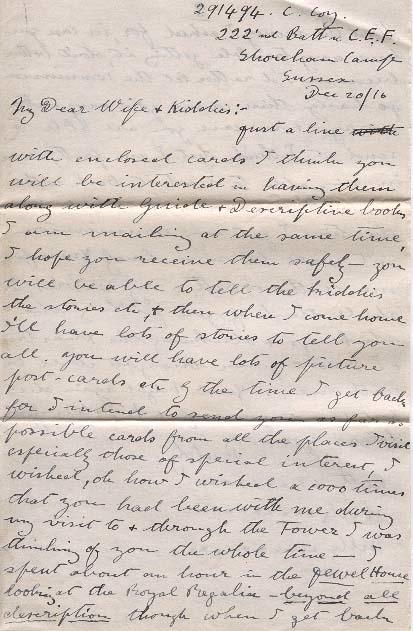 291494. C. Coy.
222'nd Batt'n C.E.F.
Shoreham Camp
Sussex
Dec 20/16
My Dear Wife & Kiddies:-
Just a line with
with enclosed cards I think you
will be interested in having them
along with Guide & Descriptive books
I am mailing at the same time,
I hope you receive them safely - you
will be able to tell the kiddies
the stories etc, & then when I come home
I'll have lots of stories to tell you
all. you will have lots of picture
post-cards etc by the time I get back
for I intend to send you as far as
possible cards from all the places I visit
especially those of special interest, I
wished, oh how I wished a 1000 times
that you had been with me during
my visit to & through the Tower I was
thinking of you the whole time - I
spent about an hour in the Jewel House
looking at the Royal Regalia - beyond all
description though when I get back